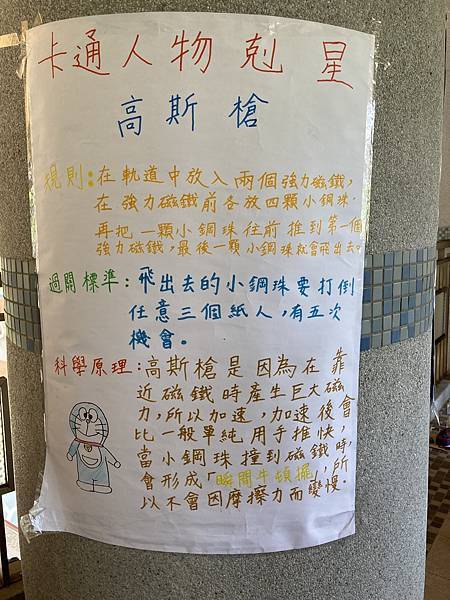 卡通人物剋星
高斯槍
規則:在軌道中放入兩個強力磁鐵,
在強力磁鐵前各放四顆小鋼珠.
再把一顆小鋼珠往前推到第一個
強力磁鐵,最後一顆小鋼珠就會飛出去。
過關標準:飛出去的小鋼珠要打倒
任意三個紙人,有五次
機會。
科學原理:高斯槍是因為在靠
近磁鐵時產生巨大磁
力,所以加速,加速後會
比一般單純用手推快,
當小鋼珠撞到磁鐵時,
會形成「瞬間牛頓擺」,所
以不會因摩擦力而變慢.